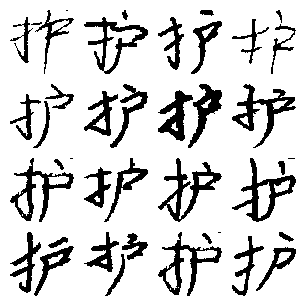 护护护护
护护护护
护护护护
护护护护